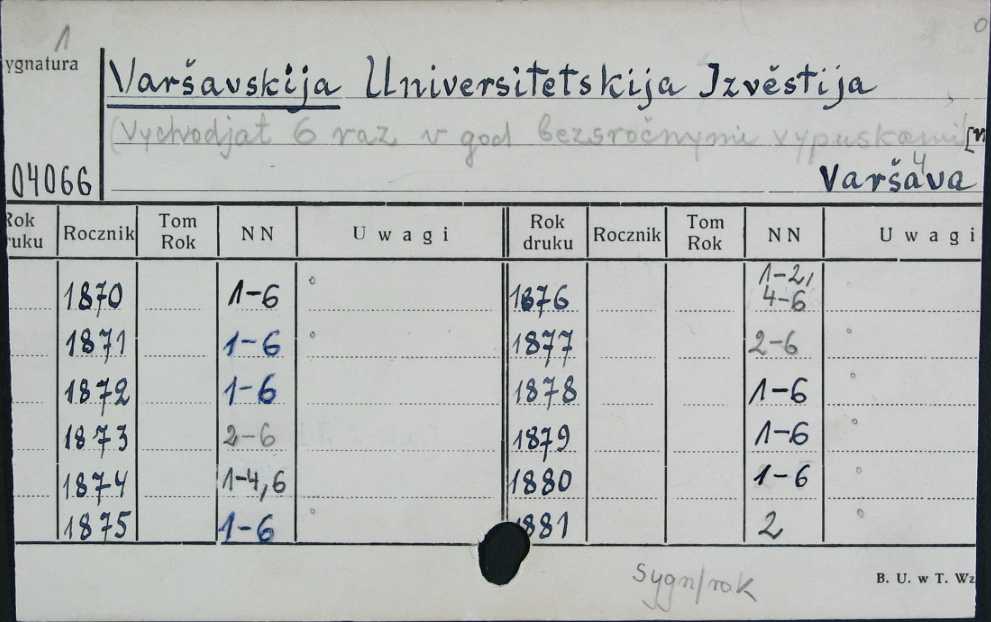 1
ygnatura
Varšavskija Universitetskija Izvěstija
(Vychodjat 6 raz v god bezsročnymi vypuskami)
04066
Varšava
Rok druku Rocznik Tom Rok NN Uwagi Rok druku Rocznik Tom Rok NN Uwagi
1870 1-6 1876 1-2, 4-6
1871 1-6 1877 2-6
1872 1-6 1878 1-6
1873 2-6 1879 1-6
1874 1-4,6 1880 1-6
1875 1-6 1881 2
Sygn/rok
B. U. w T. Wz